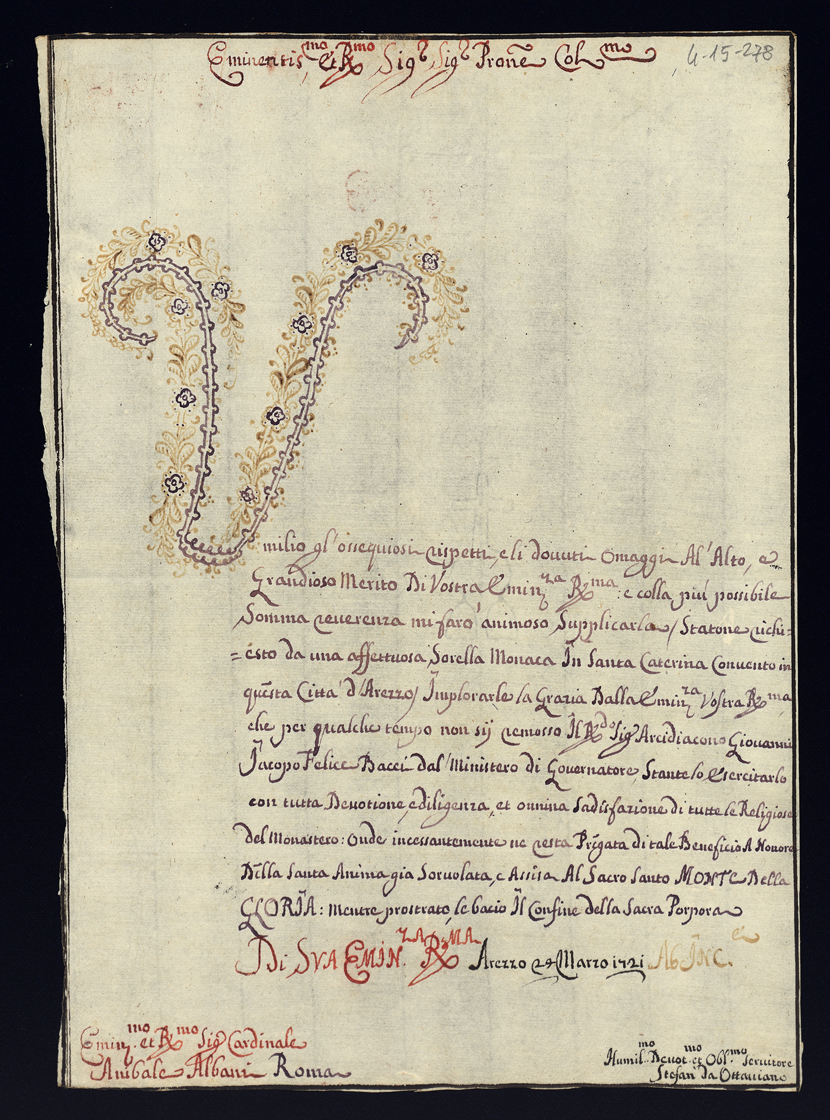 Eminentis.mo et R.mo Sig.r Sig.r Prone Col.mo
4-15-278
Vmilio gl'ossequiosi rispetti, e li douuti omaggi Al'Alto, e
Grandioso Merito Di Vostra Emin.za R.ma: e colla più possibile
Somma reuerenza mi farò animoso Supplicarla / Statone richi=
=esto da una affettuosa Sorella Monaca In Santa Caterina Conuento in
questa Città d'Arezzo / Implorarle la Grazia Dalla Emin.za Vostra R.ma
che per qualche tempo non sij remosso Il R.do Sig. Arcidiacono Giovanni
Jacopo Felice Bacci dal Ministero di Gouernatore, Stante lo esercitarlo
con tutta Deuotione, e diligenza, et omnina Sadisfazione di tutte le Religiose
del Monastero: Onde incessantemente ne resta Prigata di tale Beneficio A Honore
Della Santa Anima gia Soruolata, e Assisa Al Sacro Santo MONTE Della
GLORIA: mentre prostrato, le bacio Il Confine della Sacra Porpora
Di SVA EMIN.ZA R.MA Arezzo 24 Marzo 1721 Ab INC.
Emin.mo et R.mo Sig. Cardinale
Anibale Albani Roma
Humil.mo Deuot.mo et Obl.mo Seruitore
Stefan da Ottauiano